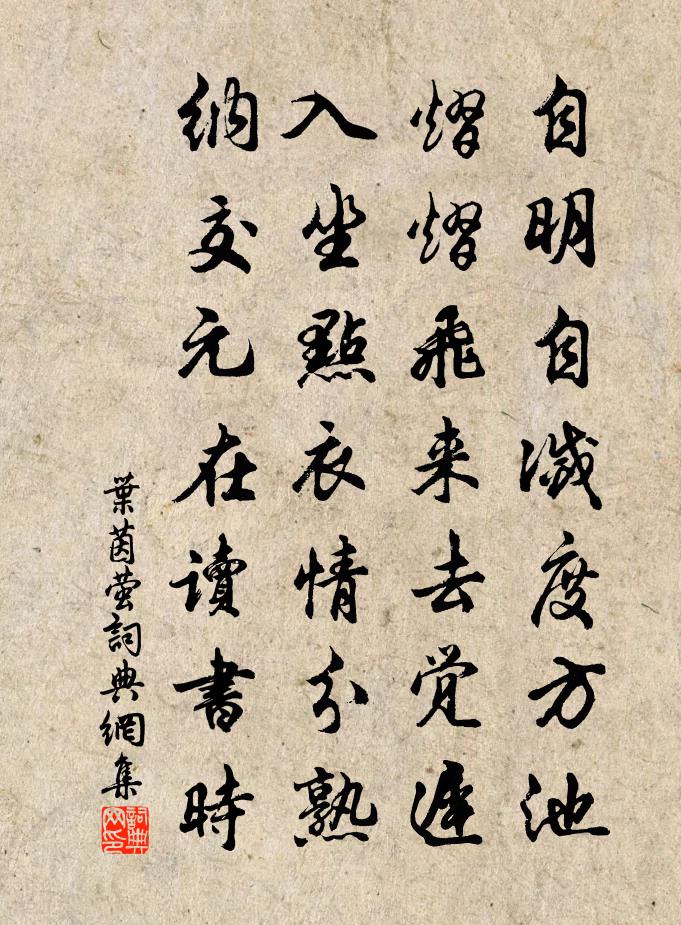 自明自滅度方池
熠熠飛来去覚遅
入坐點衣情分熟
納交元在讀書時
葉茵螢詞典網集
詞典網印